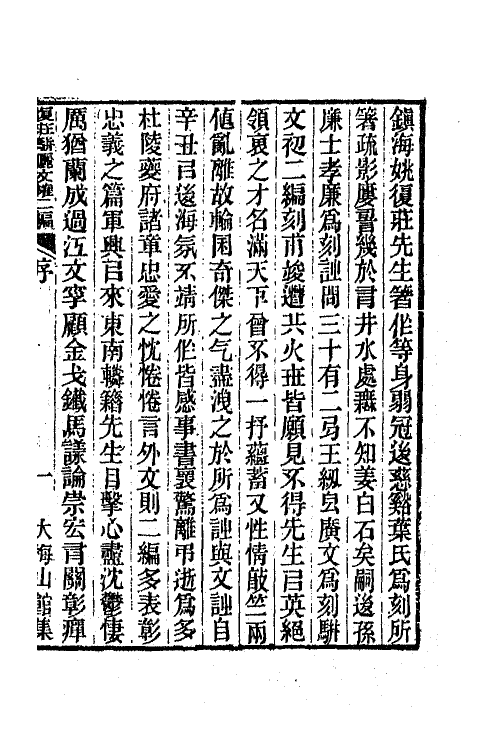 鎭海姚復莊先生箸作等身弱冠後慈谿葉氏爲刻所
箸疏影廔䛐幾於言井水處無不知姜白石矣嗣後孫
廉士孝廉爲刻詩問三十有二弓王縵㠯廣文爲刻駢
文初二編刻甫竣遭兵火世皆願見不得先生㠯英絕
領袞之才名滿天下曾不得一抒蘊蓄又性情敲竺兩
値亂離故輪囷奇傑之气盡洩之於所爲詩與文詩自
辛丑㠯後海氛不靖所作皆感事書襄驚離弔逝爲多
杜陵夔府諸章忠愛之忱惓惓言外文則二編多表彰
忠義之篇軍興㠯來東南轔籍先生目擊心盡沈鬱悽
厲猶蘭成過江文字顧金戈鐵馬議論崇宏言關彰癉
復莊駢儷文榷二編 序 一 大梅山館集